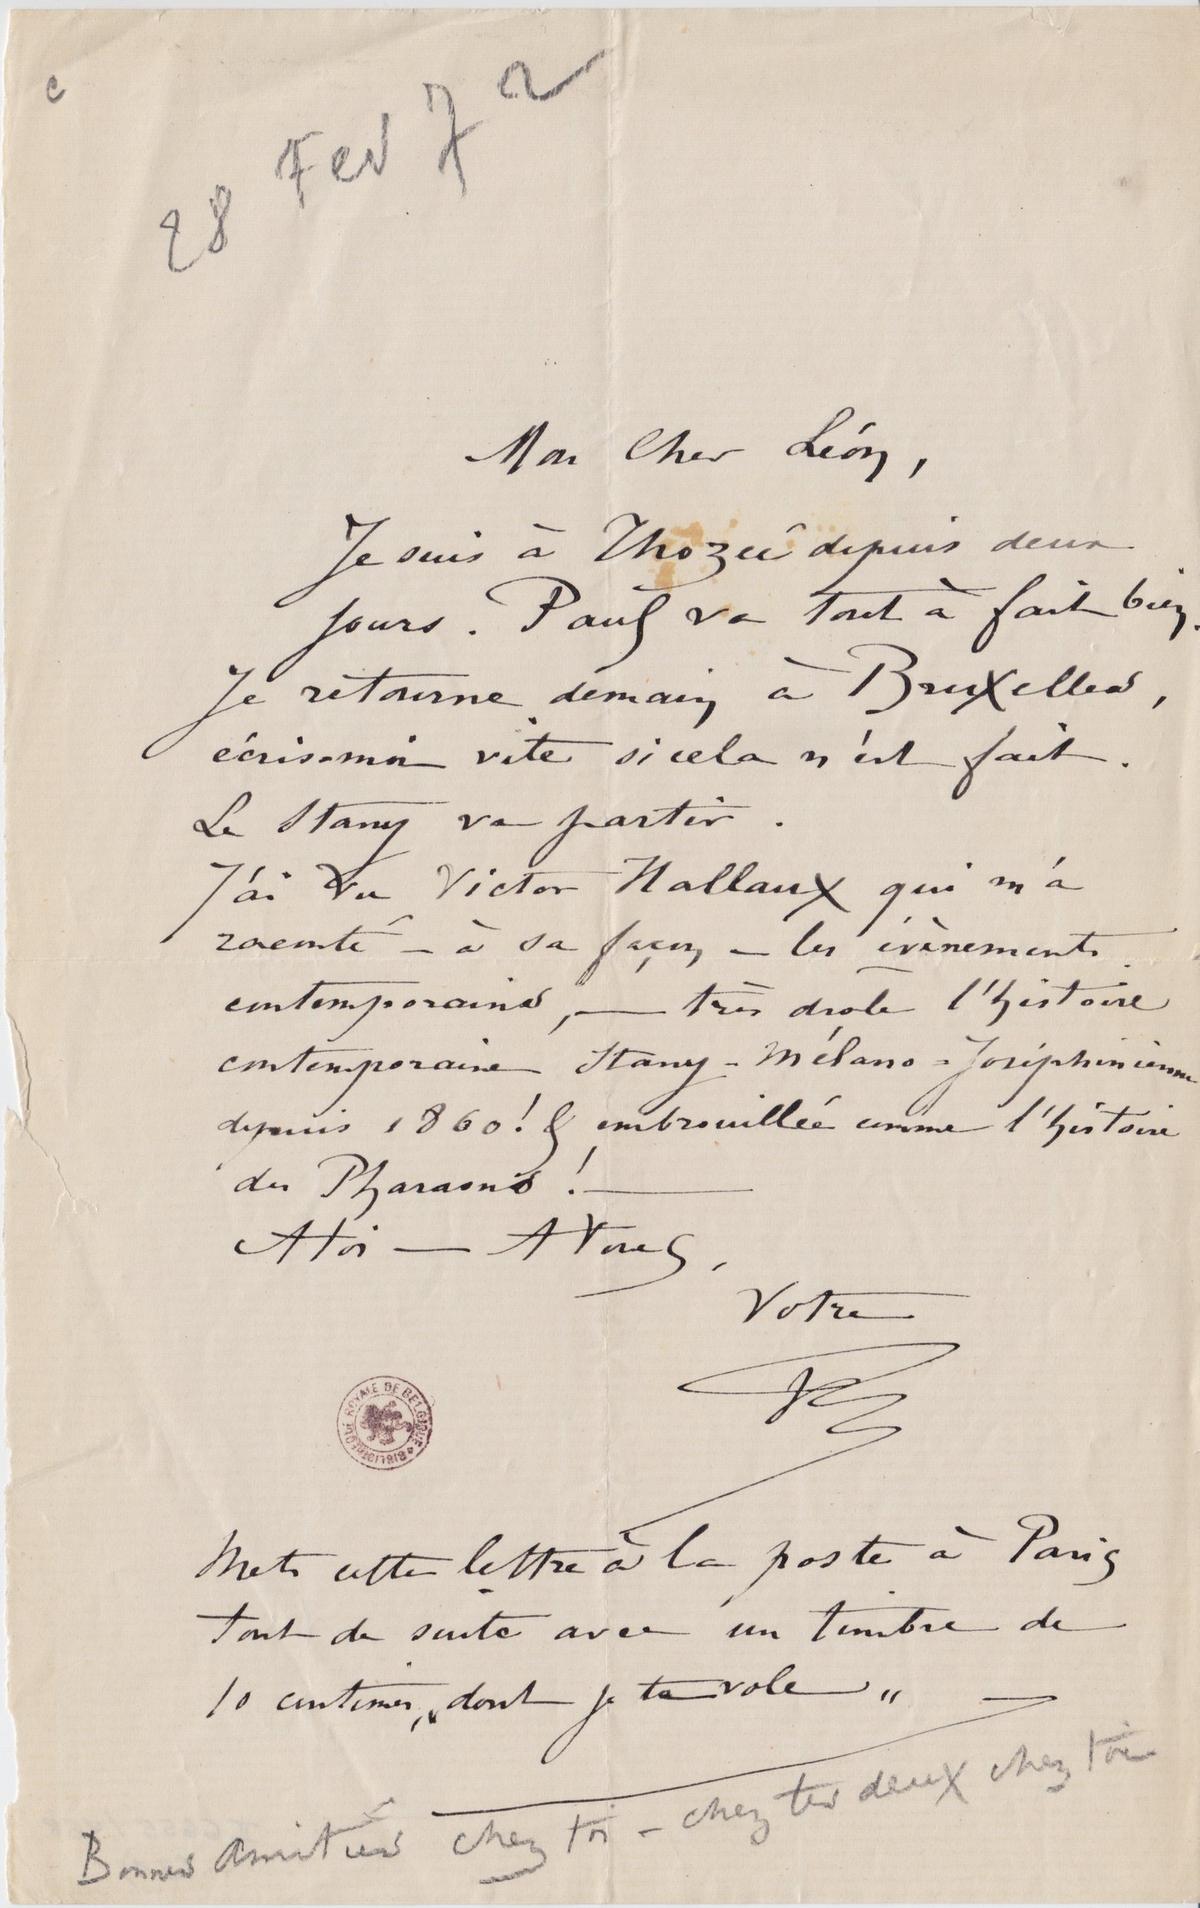 c
28 Fev 72
Mon Cher Léon,
Je suis à Thozée depuis deux
jours. Paul va tout à fait bien.
Je retourne demain à Bruxelles,
écris-moi vite si cela n'est fait.
Le Stany va partir.
J'ai vu Victor Hallaux qui m'a
raconté – à sa façon – les évènements
contemporains, — très drole l'histoire
contemporaine Stany-Mélano-Joséphinienne
depuis 1860! & embrouillée comme l'histoire
des Pharaons! —
A toi — A Vous,
Votre
BIBLIOTHEQUE ROYALE DE BELGIQUE
Mets cette lettre à la poste à Paris
tout de suite avec un timbre de
10 centimes, „dont je te vole„ —
Bonnes amitiés chez toi – chez tes deux chez toi